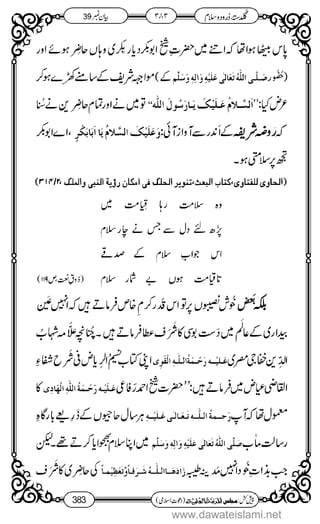 گلدستہ دُرود و سلام
٣٨٣
بیان نمبر 39
پاس بیٹھا ہوا تھا کہ اتنے میں حضرتِ شیخ ابوبکر دیار بکری وہاں حاضِر ہوئے اور
(حُضُور صَلَّی اللّٰہُ تَعَالٰی عَلَیْہِ وَاٰلِہٖ وَسَلَّم کے) مواجہہ شریف کے سامنے کھڑے ہوکر
عرض کیا: ’’اَلسَّلَامُ عَلَیْکَ یَارَسُوْلَ اللّٰہ‘‘ تو میں نے اور تمام حاضِرین نے سُنا
کہ روضہ شریفہ کے اندر سے آواز آئی: وَعَلَیْکَ السَّلَامُ یَا اَبَابَکْرٍ، اے ابوبکر
تجھ پر سلامتی ہو۔
(الحاوی للفتاوی، کتاب البعث، تنویر الحلک فی امکان رؤیۃ النبی والملک، ٢/ ٣١٤)
وہ سلامت رہا قِیامت میں
پڑھ لئے دل سے جس نے چار سلام
اس جوابِ سلام کے صدقے
تا قیامت ہوں بے شمار سلام (ذوقِ نعت، ص۱۱۹)
بلکہ بعض خُوش نصیبوں پر تو اس قدر کرم خاص فرماتے ہیں کہ انہیں عَین
بیداری کے عالَم میں دَست بوسی کا شرف عطا فرماتے ہیں۔ چُنانچہ علّامہ شہابُ
الدِّین خفاجی مصری عَلَیْہِ رَحْمَۃُ اللّٰہِ الْقَوِی اپنی کتاب نسیمُ الرِّیاض فی شرحِ شفاءِ
القاضی عیاض میں فرماتے ہیں: ’’حضرت شیخ احمد رفاعی عَلَیْہِ رَحْمَۃُ اللّٰہِ الْہَادِی کا
معمول تھا کہ آپ رحمۃ اللّٰہ تعالٰی علیہ ہر سال حاجیوں کے ذریعے بارگاہِ
رسالت مآب صَلَّی اللّٰہُ تَعَالٰی عَلَیْہِ وَاٰلِہٖ وَسَلَّم میں اپنا سلام بھجوایا کرتے تھے۔ لیکن
جب بذاتِ خُود انہیں مدینہ طیبہ زَادَھَا اللّٰہُ شَرَفًا وَّتَعْظِیْماً کی حاضِری کا شَرَف
پیش کش: مجلس المدینۃ العلمیۃ (دعوتِ اسلامی)
383
www.dawateislami.net